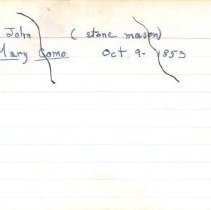 John ( stone mason)
Mary Como Oct. 9- 1853